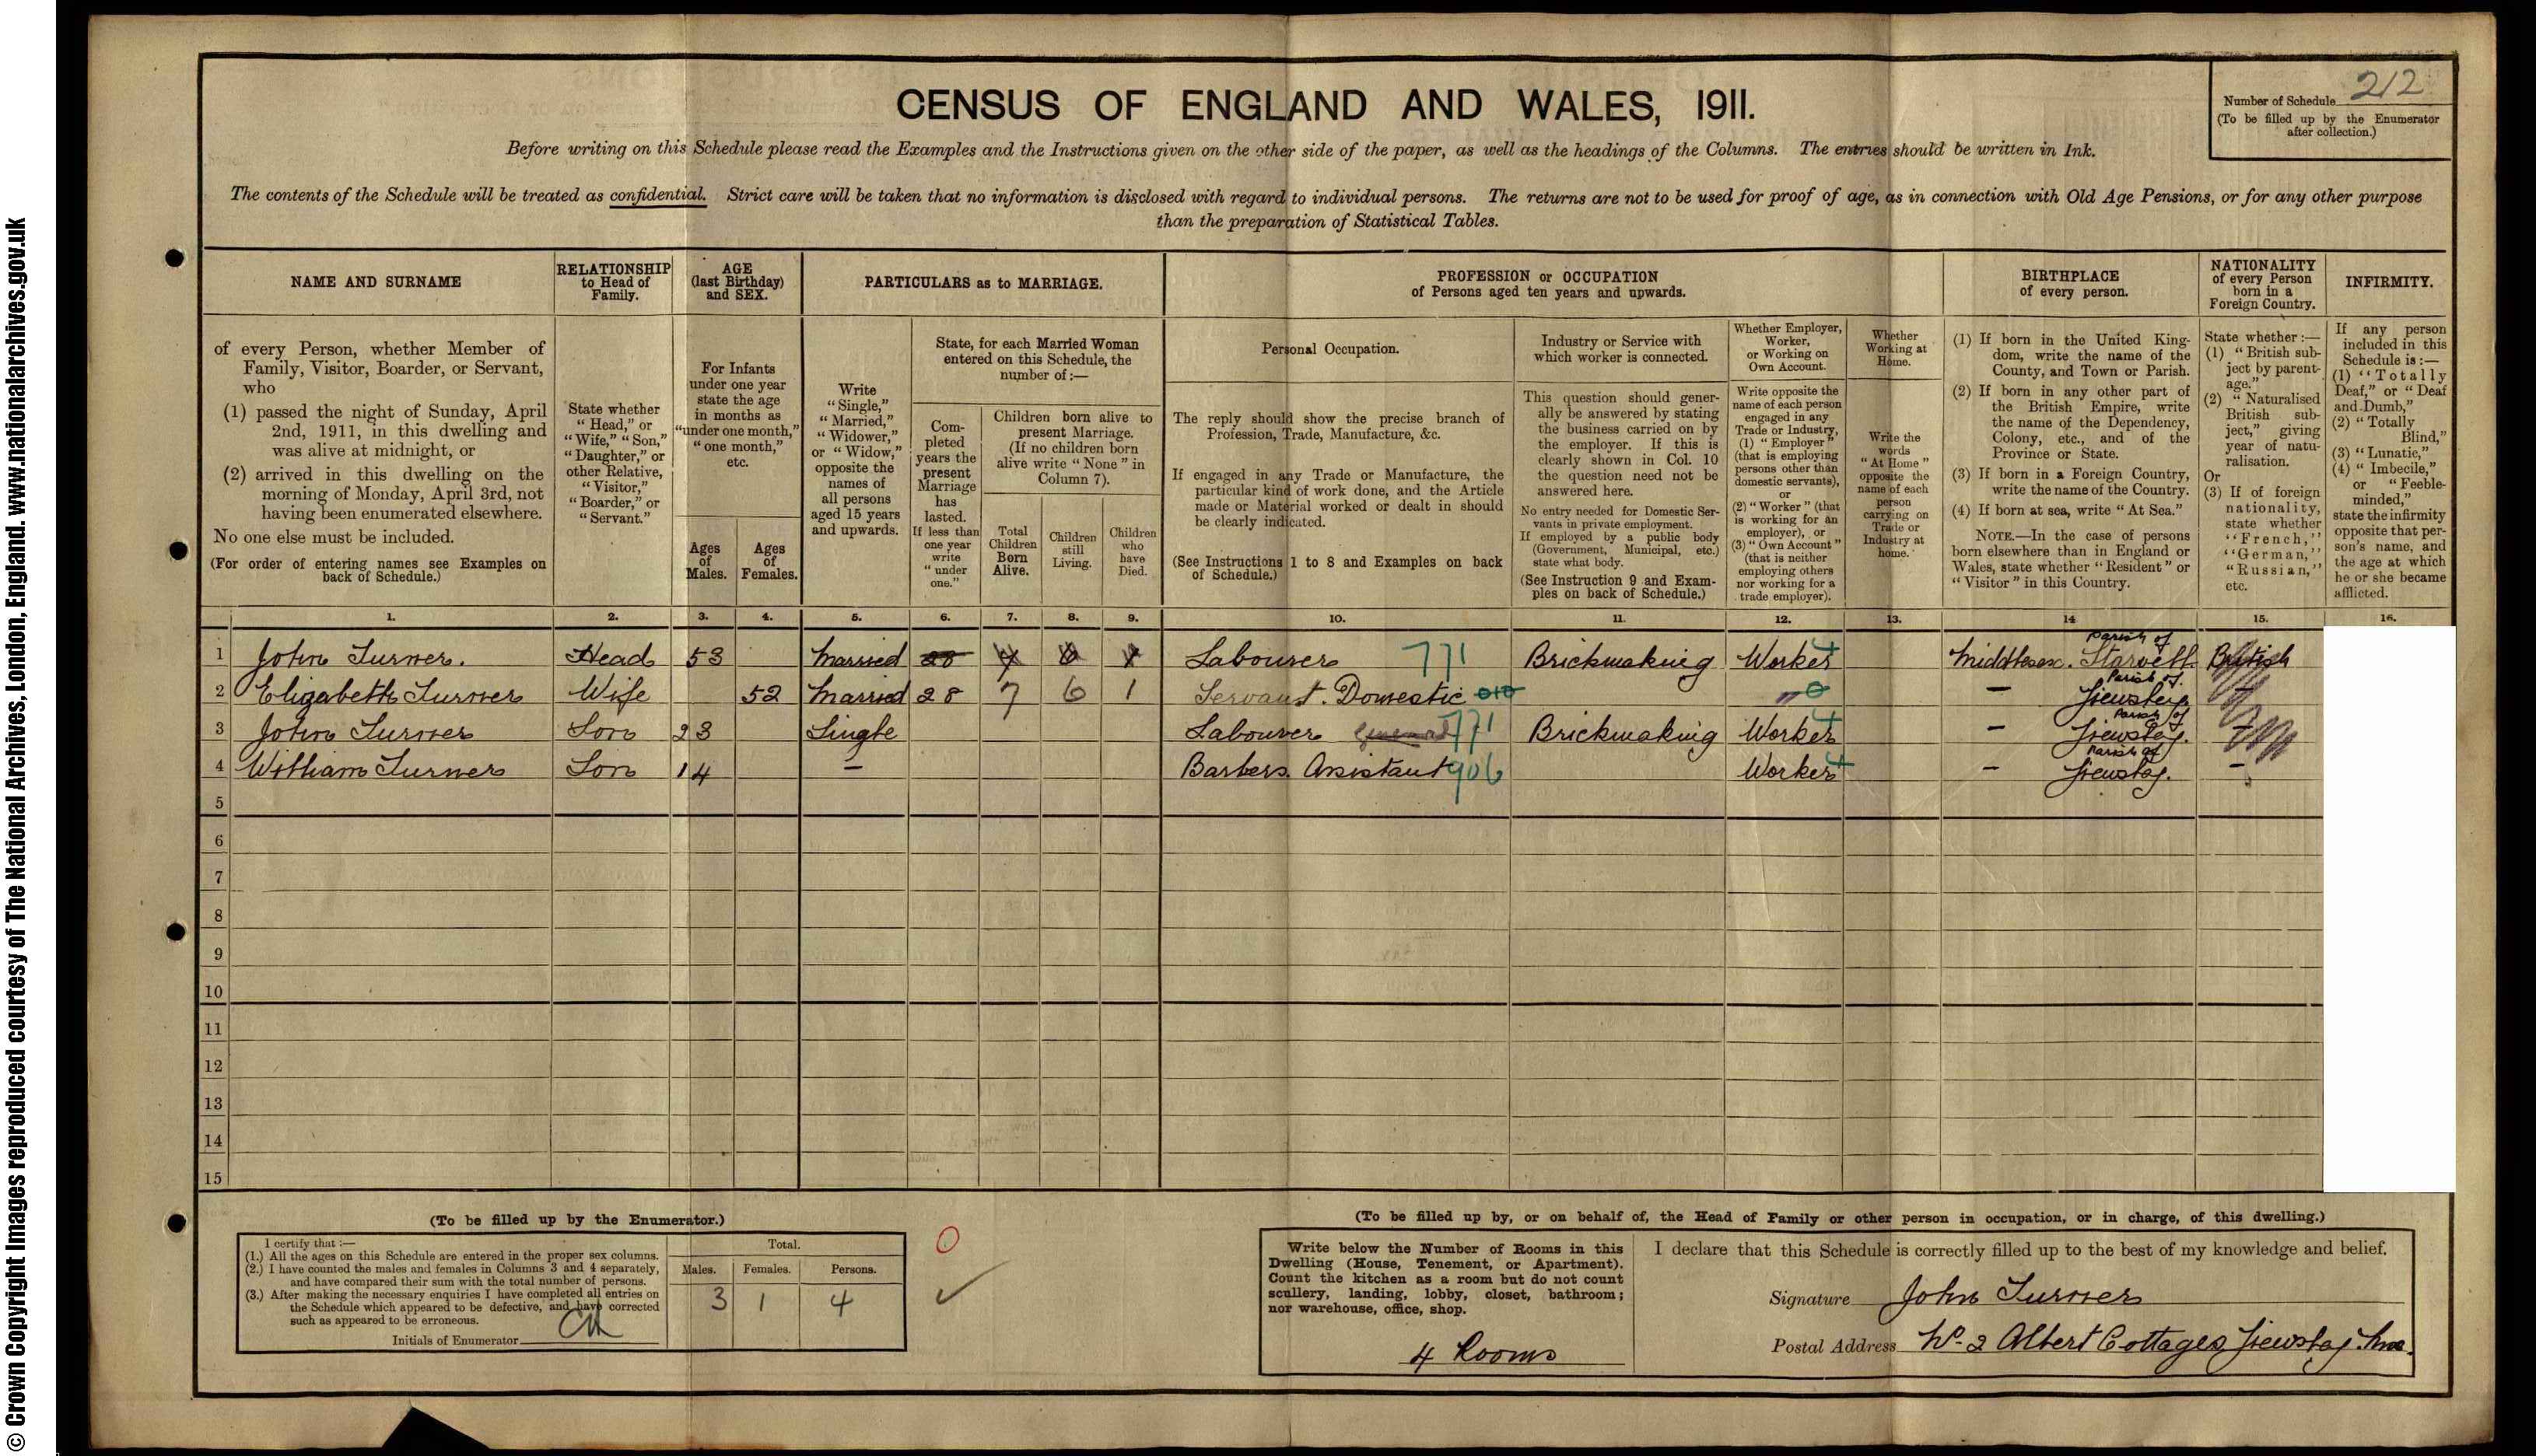 © Crown Copyright Images reproduced courtesy of The National Archives, London, England. www.nationalarchives.gov.uk
CENSUS OF ENGLAND AND WALES, 1911.
Number of Schedule 212
(To be filled up by the Enumerator
after collection.)
Before writing on this Schedule please read the Examples and the Instructions given on the other side of the paper, as well as the headings of the Columns. The entries should be written in Ink.
The contents of the Schedule will be treated as confidential. Strict care will be taken that no information is disclosed with regard to individual persons. The returns are not to be used for proof of age, as in connection with Old Age Pensions, or for any other purpose
than the preparation of Statistical Tables.
NAME AND SURNAME
of every Person, whether Member of
Family, Visitor, Boarder, or Servant,
who
(1) passed the night of Sunday, April
2nd, 1911, in this dwelling and
was alive at midnight, or
(2) arrived in this dwelling on the
morning of Monday, April 3rd, not
having been enumerated elsewhere.
No one else must be included.
(For order of entering names see Examples on
back of Schedule.)
RELATIONSHIP
to Head of
Family.
State whether
"Head," or
"Wife," "Son,"
"Daughter," or
other Relative,
"Visitor,"
"Boarder," or
"Servant."
AGE
(last Birthday)
and SEX.
For Infants
under one year
state the age
in months as
"under one month,"
"one month,"
etc.
Ages
of
Males.
Ages
of
Females.
PARTICULARS as to MARRIAGE.
Write
"Single,"
"Married,"
"Widower,"
or "Widow,"
opposite the
names of
all persons
aged 15 years
and upwards.
State, for each Married Woman
entered on this Schedule, the
number of :—
Com-
pleted
years the
present
Marriage
has
lasted.
If less than
one year
write
"under
one."
Children born alive to
present Marriage.
(If no children born
alive write "None" in
Column 7).
Total
Children
Born
Alive.
Children
still
Living.
Children
who
have
Died.
PROFESSION or OCCUPATION
of Persons aged ten years and upwards.
Personal Occupation.
The reply should show the precise branch of
Profession, Trade, Manufacture, &c.
If engaged in any Trade or Manufacture, the
particular kind of work done, and the Article
made or Material worked or dealt in should
be clearly indicated.
(See Instructions 1 to 8 and Examples on back
of Schedule.)
Industry or Service with
which worker is connected.
This question should gener-
ally be answered by stating
the business carried on by
the employer. If this is
clearly shown in Col. 10
the question need not be
answered here.
No entry needed for Domestic Ser-
vants in private employment.
If employed by a public body
(Government, Municipal, etc.)
state what body.
(See Instruction 9 and Exam-
ples on back of Schedule.)
Whether Employer,
Worker,
or Working on
Own Account.
Write opposite the
name of each person
engaged in any
Trade or Industry,
(1) "Employer"
(that is employing
persons other than
domestic servants),
or
(2) "Worker" (that
is working for an
employer), or
(3) "Own Account"
(that is neither
employing others
nor working for a
trade employer).
Whether
Working at
Home.
Write the
words
"At Home"
opposite the
name of each
person
carrying on
Trade or
Industry at
home.
BIRTHPLACE
of every person.
(1) If born in the United King-
dom, write the name of the
County, and Town or Parish.
(2) If born in any other part of
the British Empire, write
the name of the Dependency,
Colony, etc., and of the
Province or State.
(3) If born in a Foreign Country,
write the name of the Country.
(4) If born at sea, write "At Sea."
NOTE.—In the case of persons
born elsewhere than in England or
Wales, state whether "Resident" or
"Visitor" in this Country.
NATIONALITY
of every Person
born in a
Foreign Country.
State whether :—
(1) "British sub-
ject by parent-
age."
(2) "Naturalised
British sub-
ject," giving
year of natu-
ralisation.
Or
(3) If of foreign
nationality,
state whether
"French,"
"German,"
"Russian,"
etc.
INFIRMITY.
If any person
included in this
Schedule is :—
(1) "Totally
Deaf," or "Deaf
and Dumb,"
(2) "Totally
Blind,"
(3) "Lunatic,"
(4) "Imbecile,"
or "Feeble-
minded,"
state the infirmity
opposite that per-
son's name, and
the age at which
he or she became
afflicted.
1. 2. 3. 4. 5. 6. 7. 8. 9. 10. 11. 12. 13. 14 15. 16.
1 John Turner. Head 53 Married 28 Labourer 771 Brickmaking Worker Middlesex. Parish of British
2 Elizabeth Turner Wife 52 Married 28 7 6 1 Servant. Domestic 010 " 0 — Parish of. Yiewsley
3 John Turner Son 23 Single Labourer General 771 Brickmaking Worker — Parish of Yiewsley.
4 William Turner Son 14 — Barbers Assistant 906 Worker — Parish of Yiewsley. —
5
6
7
8
9
10
11
12
13
14
15
(To be filled up by the Enumerator.)
I certify that :—
(1.) All the ages on this Schedule are entered in the proper sex columns.
(2.) I have counted the males and females in Columns 3 and 4 separately,
and have compared their sum with the total number of persons.
(3.) After making the necessary enquiries I have completed all entries on
the Schedule which appeared to be defective, and have corrected
such as appeared to be erroneous.
Initials of Enumerator
Total.
Males. Females. Persons.
3 1 4
(To be filled up by, or on behalf of, the Head of Family or other person in occupation, or in charge, of this dwelling.)
Write below the Number of Rooms in this
Dwelling (House, Tenement, or Apartment).
Count the kitchen as a room but do not count
scullery, landing, lobby, closet, bathroom;
nor warehouse, office, shop.
4 Rooms
I declare that this Schedule is correctly filled up to the best of my knowledge and belief.
Signature John Turner
Postal Address No 2 Albert Cottages, Yiewsley